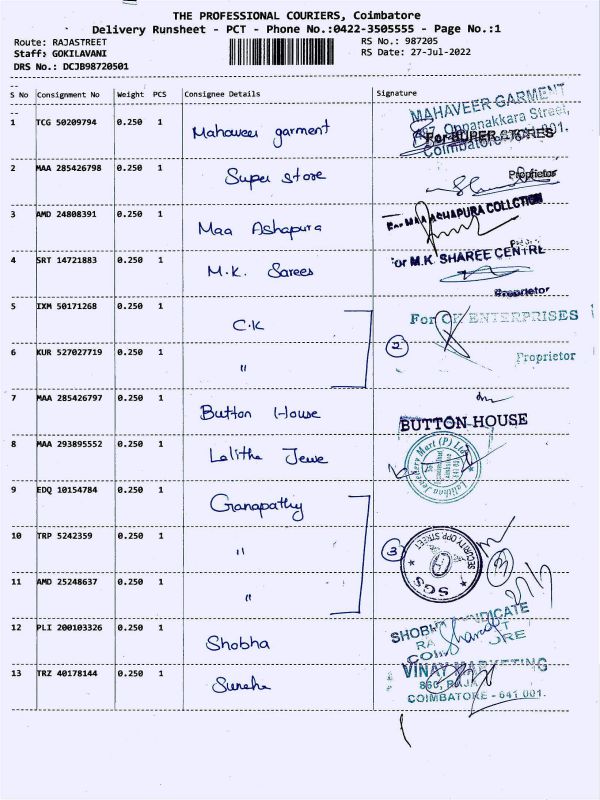 THE PROFESSIONAL COURIERS, Coimbatore
Delivery Runsheet - PCT - Phone No.:0422-3505555 - Page No.:1
Route: RAJASTREET RS No.: 987205
Staff: GOKILAVANI RS Date: 27-Jul-2022
DRS No.: DCJB98720501
S No Consignment No Weight PCS Consignee Details Signature
1 TCG 50209794 0.250 1 Mahaveer garment
MAHAVEER GARMENT
Oppanakkara Street,
Coimbatore 001.
For SUPER STORES
2 MAA 285426798 0.250 1 Super store Proprietor
3 AMD 24808391 0.250 1 Maa Ashapura For MAA ASHAPURA COLLCTION
4 SRT 14721883 0.250 1 M.K. Sarees For M.K. SHAREE CENTRE
Proprietor
5 IXM 50171268 0.250 1 C.K For CK ENTERPRISES
2
6 KUR 527027719 0.250 1 " Proprietor
7 MAA 285426797 0.250 1 Button House BUTTON HOUSE
8 MAA 293895552 0.250 1 Lalitha Jewe Lalithaa Jewellery Mart (P) Ltd
9 EDQ 10154784 0.250 1 Ganapathy
10 TRP 5242359 0.250 1 " 3 SECURITY OPP STREET
SGS
11 AMD 25248637 0.250 1 "
12 PLI 200103326 0.250 1 Shobha SHOBHA SYNDICATE
13 TRZ 40178144 0.250 1 Suneha VINAY MARKETING
860, RAJA
COIMBATORE - 641 001.